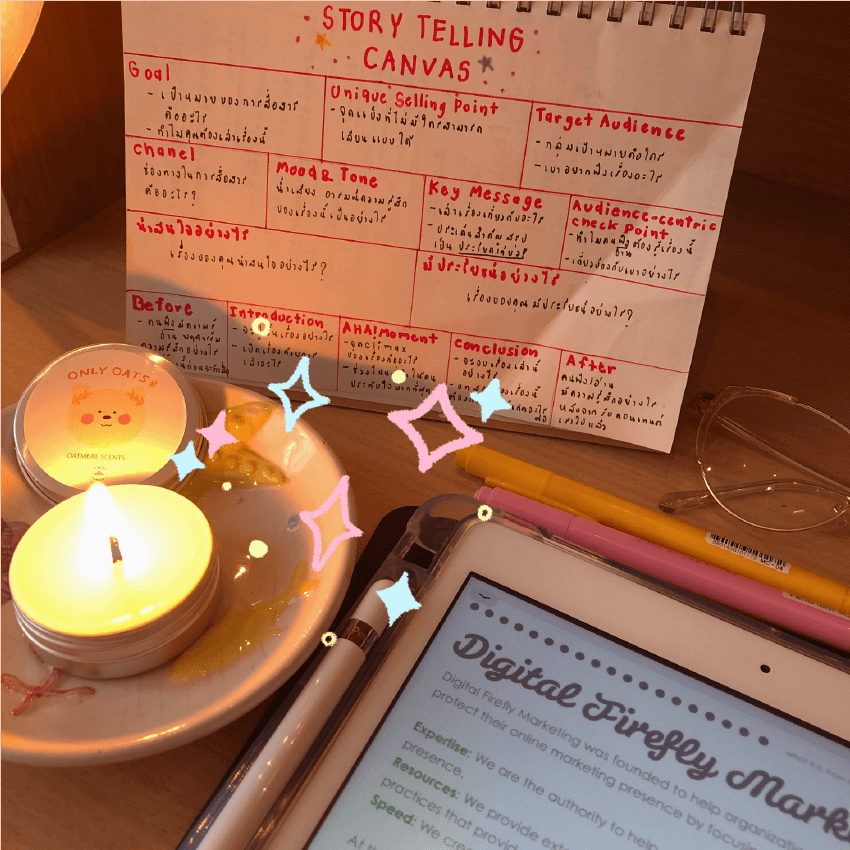 STORY TELLING
CANVAS
Goal
- เป้าหมายของการสื่อสาร
คืออะไร
- ทำไมคุณต้องเล่าเรื่องนี้
Unique Selling Point
- จุดแข็งที่ไม่มีใครสามารถ
เลียนแบบได้
Target Audience
- กลุ่มเป้าหมายคือใคร
- เขาอยากฟังเรื่องอะไร
Chanel
ช่องทางในการสื่อสาร
คืออะไร?
Mood & Tone
น้ำเสียง อารมณ์ความรู้สึก
ของเรื่องนี้เป็นอย่างไร
Key Message
- เล่าเรื่องเกี่ยวกับอะไร
- ประเด็นสำคัญ สรุป
เป็น ประโยคให้ได้
Audience-centric
check Point
- ทำไมคนฟังต้องรู้เรื่องนี้
อ่าน
- เกี่ยวข้องกับเขาอย่างไร
น่าสนใจอย่างไร
เรื่องของคุณน่าสนใจอย่างไร?
มีประโยชน์อย่างไร
เรื่องของคุณมีประโยชน์อย่างไร?
Before
- คนฟังมีความรู้
อ่าน
ความรู้สึกอย่างไร
Introduction
AHA!Moment
- จุดclimax
ของเรื่องคืออะไร
Conclusion
- จะจบเรื่องเล่านี้
อย่างไร
After
คนฟัง/อ่าน
มีความรู้สึกอย่างไร
หลังจากรับคอนเทนต์
เราไปแล้ว
ONLY OATS
OATMEAL SCENTS
Digital Firefly Mark
what it is
Digital Firefly Marketing was founded to help organizatio
protect their online marketing presence by focusin
Expertise: We are the authority to help
presence.
Resources: We provide ext
practices that provid
Speed: We crea
At th